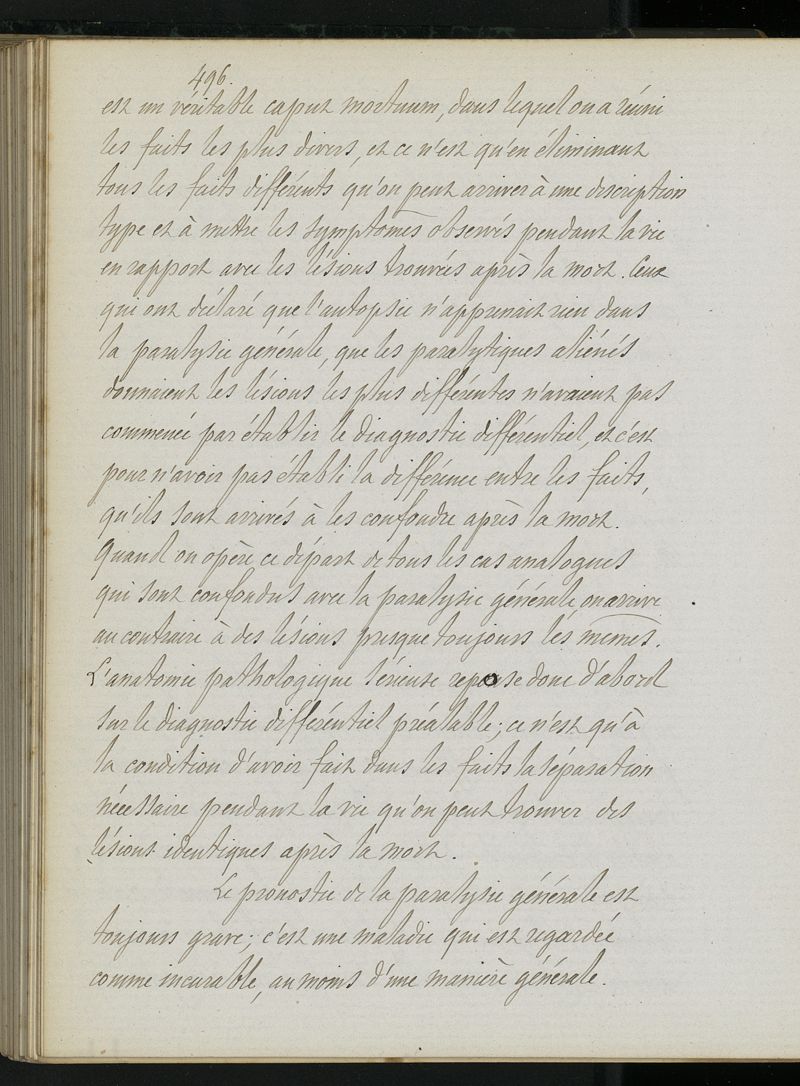 496.
est un véritable caput mortuum, dans lequel on a réuni
les faits les plus divers, et ce n'est qu'en éliminant
tous les faits différents qu'on peut arriver à une description
type et à mettre les symptômes observés pendant la vie
en rapport avec les lésions trouvées après la mort. Ceux
qui ont déclaré que l'autopsie n'apprenait rien dans
la paralysie générale, que les paralytiques aliénés
donnaient les lésions les plus différentes n'avaient pas
commencé par établir le diagnostic différentiel, et c'est
pour n'avoir pas établi la différence entre les faits,
qu'ils sont arrivés à les confondre après la mort.
Quand on opère ce départ de tous les cas analogues
qui sont confondus avec la paralysie générale, on arrive
au contraire à des lésions presque toujours les mêmes.
L'anatomie pathologique sérieuse repose donc d'abord
sur le diagnostic différentiel préalable; ce n'est qu'à
la condition d'avoir fait dans les faits la séparation
nécessaire pendant la vie qu'on peut trouver des
lésions identiques après la mort.
Le pronostic de la paralysie générale est
toujours grave; c'est une maladie qui est regardée
comme incurable, au moins d'une manière générale.